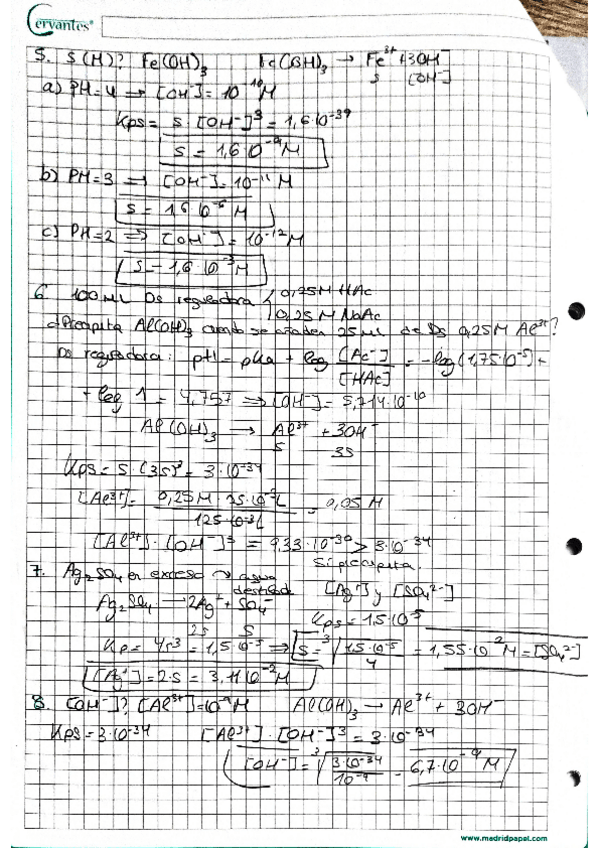 Cervantes®
5. S(M)? Fe(OH)₃ Fe(OH)₃ → Fe³⁺ + 3OH⁻
s [OH⁻]
a) PH=4 → [OH⁻] = 10⁻¹⁰M
Kps = s·[OH⁻]³ = 1,6·10⁻³⁹
s = 1,6·10⁻⁹M
b) PH=3 ⇒ [OH⁻] = 10⁻¹¹M
s = 1,6·10⁻⁶M
c) PH=2 ⇒ [OH⁻] = 10⁻¹²M
s = 1,6·10⁻³M
6 100ML Ds reguladora { 0,25M HAc
0,25M NaAc
¿Precipita Al(OH)₃ cuando se añaden 25ML de Ds 0,25M Al³⁺?
Ds reguladora: pH = pKa + log [Ac⁻]/[HAc] = -log(1,75·10⁻⁵) +
+ log 1 = 4,757 ⇒ [OH⁻] = 5,714·10⁻¹⁰
Al(OH)₃ → Al³⁺ + 3OH⁻
s 3s
Kps = s·(3s)³ = 3·10⁻³⁴
[Al³⁺] = 0,25M·25·10⁻³L / 125·10⁻³L = 0,05M
[Al³⁺]·[OH⁻]³ = 9,33·10⁻³⁰ > 3·10⁻³⁴
Si precipita.
7. Ag₂SO₄ en exceso → agua
destilada [Ag⁺] y [SO₄²⁻]
Ag₂SO₄ → 2Ag⁺ + SO₄⁻ Kps = 1,5·10⁻⁵
2s s
Kp = 4s³ = 1,5·10⁻⁵ ⇒ s = ³√(1,5·10⁻⁵/4) = 1,55·10⁻²M = [SO₄²⁻]
[Ag⁺] = 2·s = 3,11·10⁻²M
8. [OH⁻]? [Al³⁺] = 10⁻⁹M Al(OH)₃ → Al³⁺ + 3OH⁻
Kps = 3·10⁻³⁴ [Al³⁺]·[OH⁻]³ = 3·10⁻³⁴
[OH⁻] = ³√(3·10⁻³⁴/10⁻⁹) = 6,7·10⁻⁹M
www.madridpapel.com